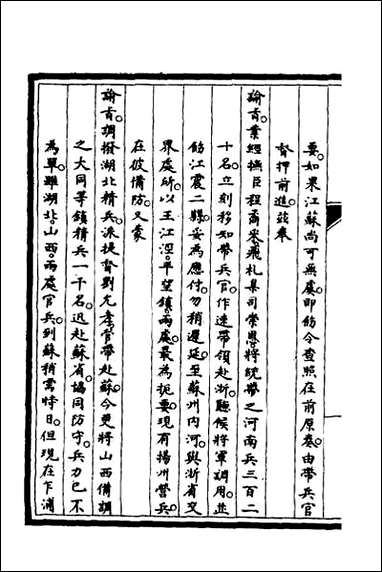 要。如果江蘇尚可無虞。即飭令查照在前原奏。由帶兵官
督押前進。茲奉
諭旨。業經撫臣程矞采飛札臬司崇恩。將統帶之河南兵三百二
十名。立刻移知帶兵官。作速帶領赴浙。聽候將軍調用。並
飭江震二縣妥為應付。勿稍遲延。至蘇州內河。與浙省交
界處所。以王江涇。平望鎮。兩處。最為扼要。現有揚州營兵。
在彼備防。又蒙
諭旨。調撥湖北精兵。派提督劉允孝管帶赴蘇。今更將山西備調
之大同等鎮精兵一千名。迅赴蘇省。協同防守。兵力已不
為單。雖湖北。山西。兩處官兵。到蘇稍需時日。但現在乍浦